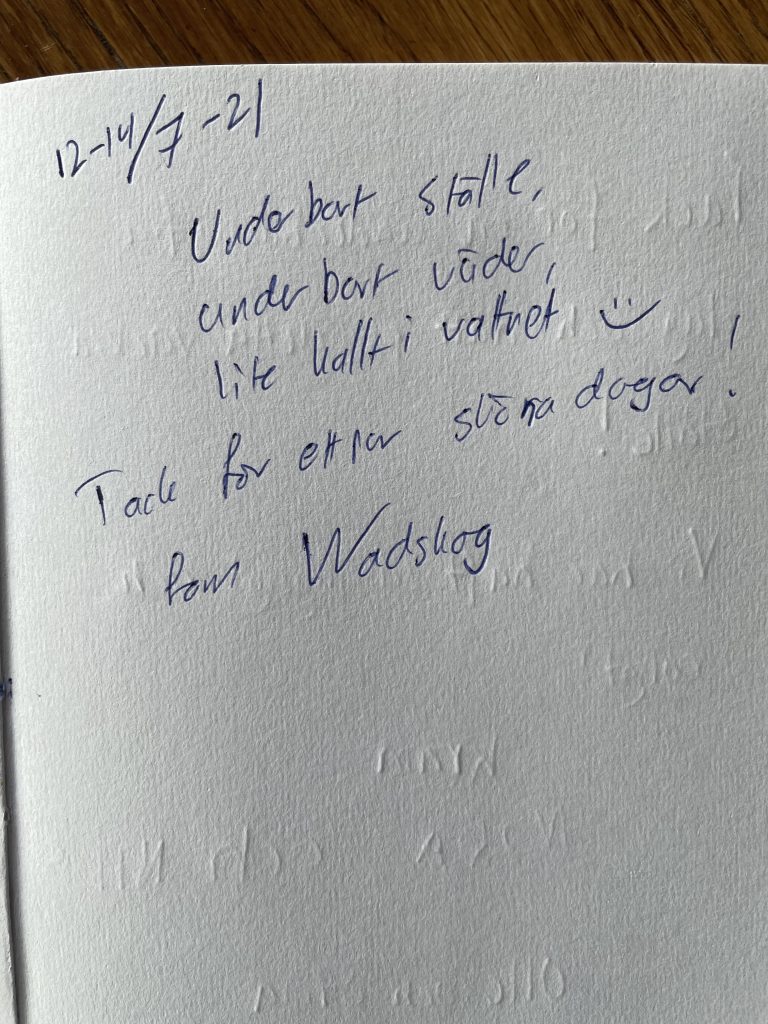 12-14/7 -21
Underbart ställe,
underbart väder,
lite kallt i vattnet :)
Tack för ett par sköna dagar!
fam Wadskog